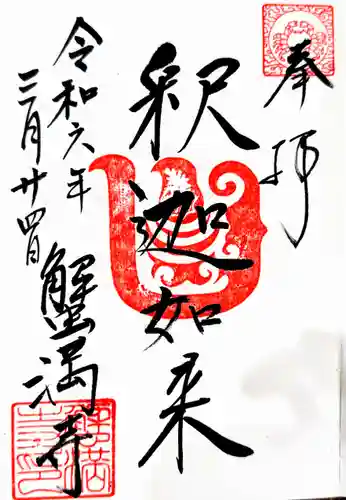 奉拝
釈迦如来
令和六年
三月廿四日
蟹満寺